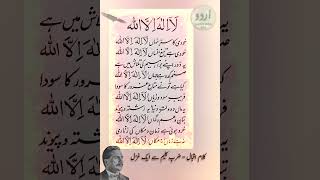 اردو
لَا اِلٰهَ اِلَّا اللّٰه
خودی کا سرِ نہاں لَا اِلٰهَ اِلَّا اللّٰه
خودی ہے تیغ فساں لَا اِلٰهَ اِلَّا اللّٰه
یہ دور اپنے براہیم کی تلاش میں ہے
صنم کدہ ہے جہاں لَا اِلٰهَ اِلَّا اللّٰه
کیا ہے تو نے متاعِ غرور کا سودا
فریبِ سود و زیاں لَا اِلٰهَ اِلَّا اللّٰه
یہ مال و دولتِ دنیا یہ رشتہ و پیوند
بتانِ وہم و گماں لَا اِلٰهَ اِلَّا اللّٰه
خرد ہوئی ہے زمان و مکاں کی زناری
نہ ہے زماں نہ مکاں لَا اِلٰهَ اِلَّا اللّٰه
کلام اقبال - ضرب کلیم سے ایک غزل